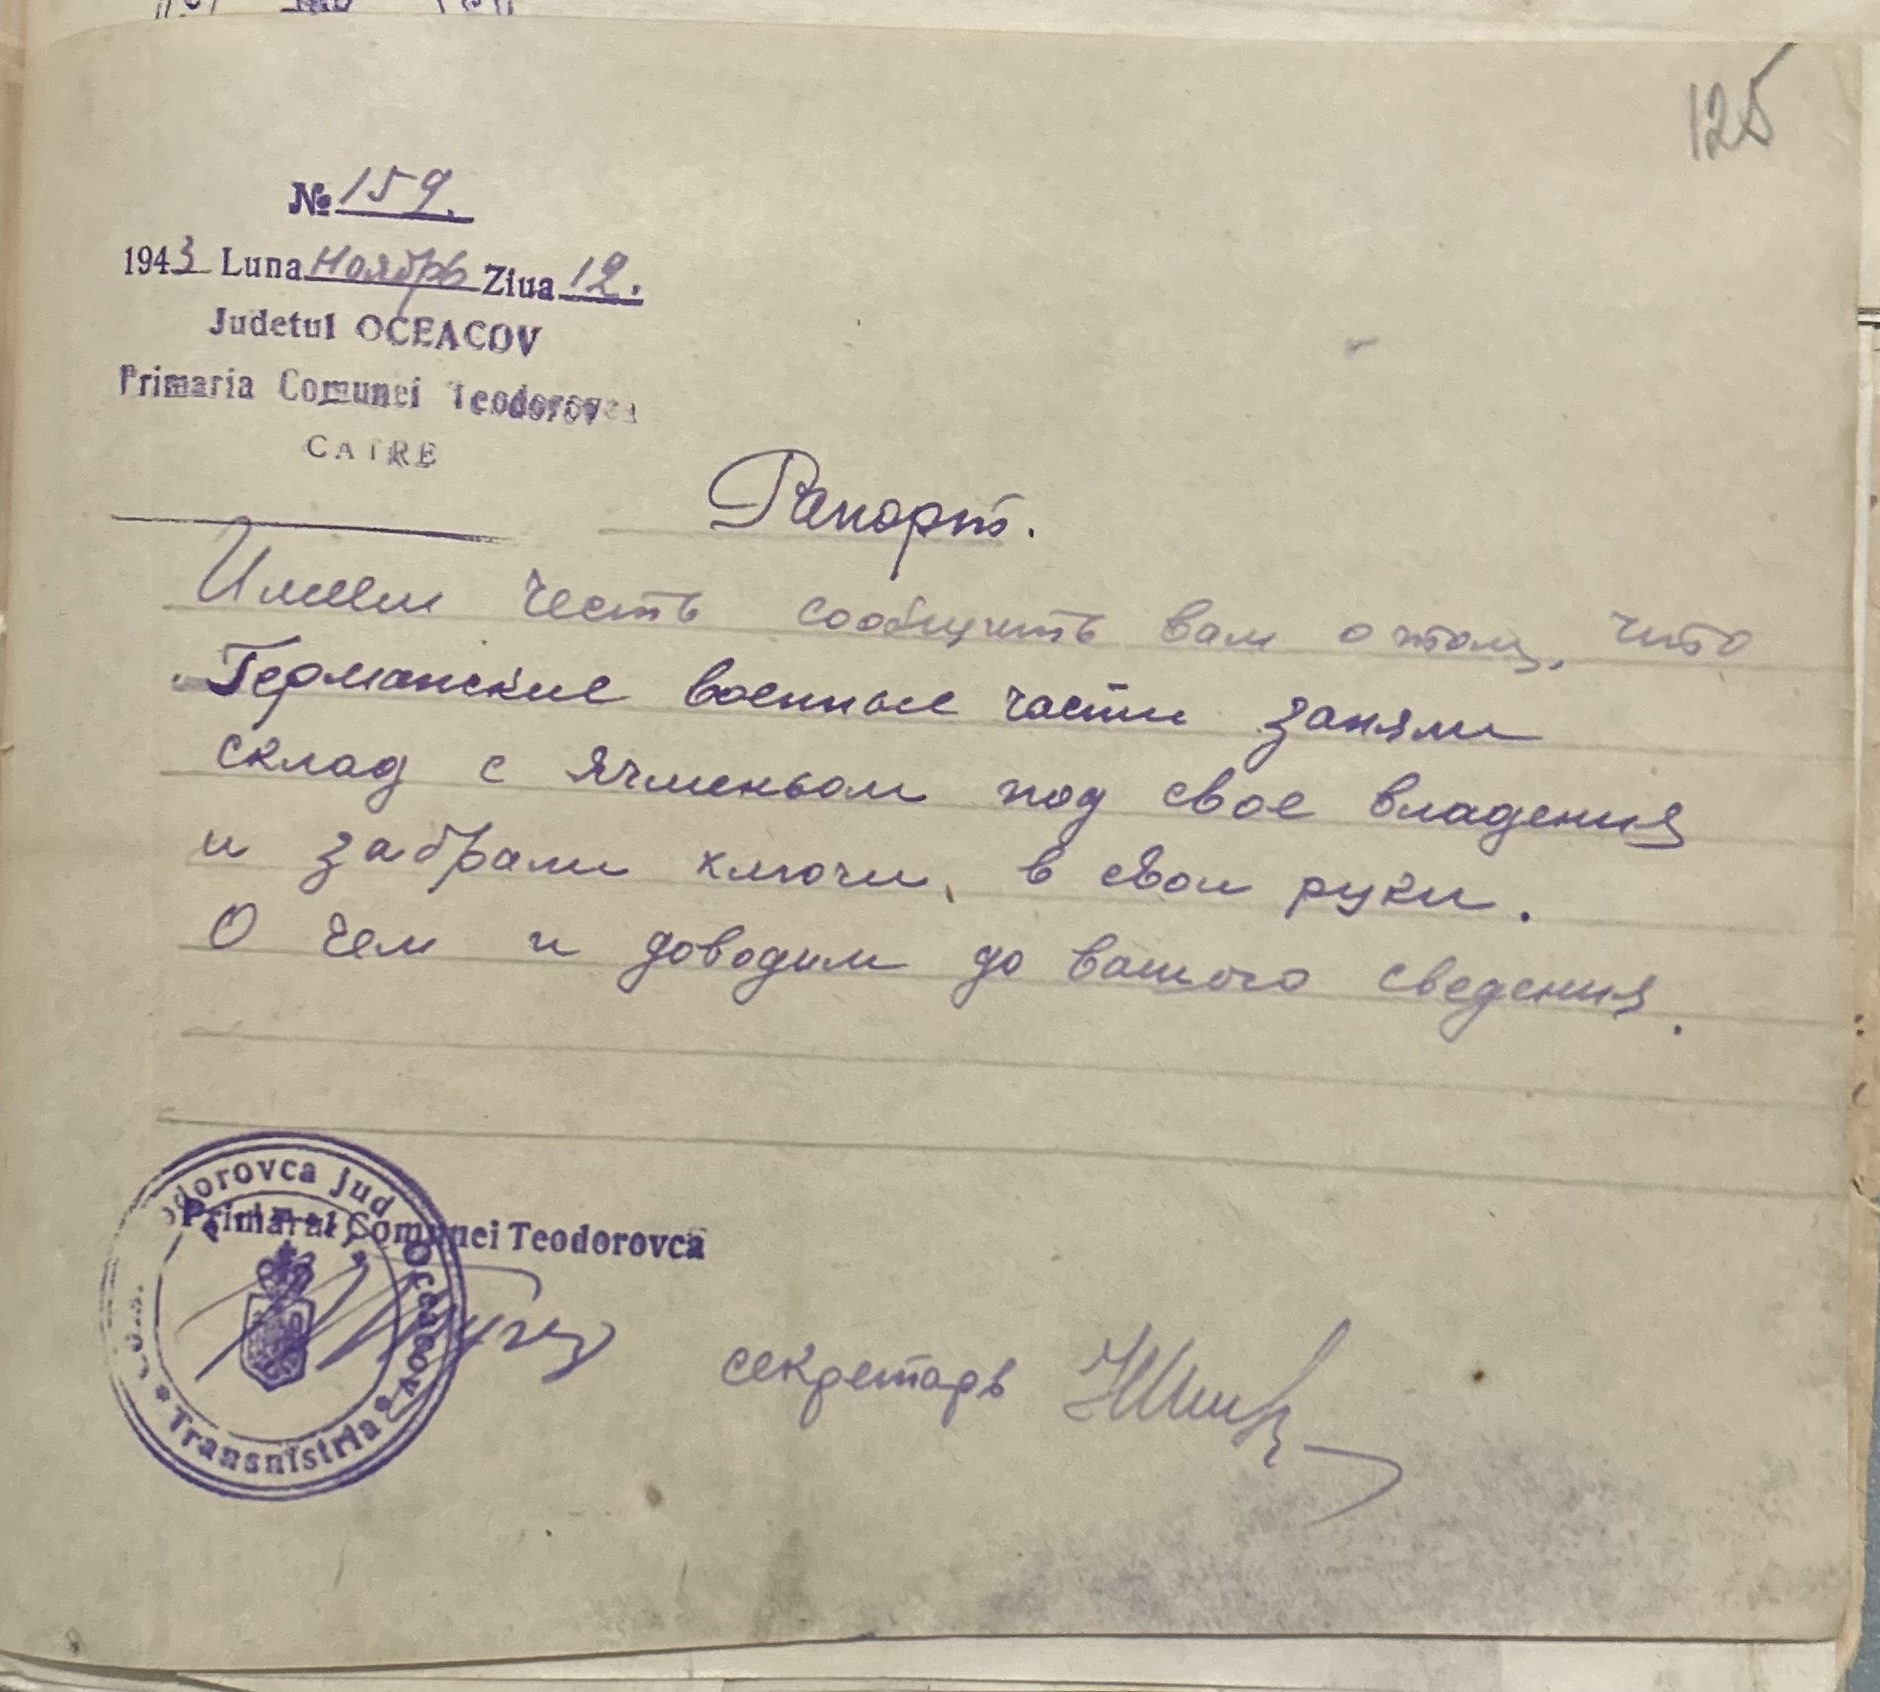 125
№ 159.
1943 Luna Ноябрь Ziua 12.
Judetul OCEACOV
Primaria Comunei Teodorovca
CATRE
Рапорт.
Имеем честь сообщить вам о том, что
Германские военные части заняли
склад с ячменьом под свое владения
и забрали ключи, в свои руки.
О чем и доводим до вашого сведения.
Primarul Comunei Teodorovca
odorovca jud. Oceacov
* Transnistria *
секретарь